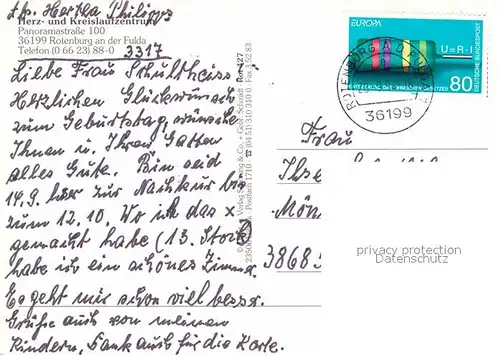 z.Z. Hertha Philipps
Herz- und Kreislaufzentrum
Panoramastraße 100
36199 Rotenburg an der Fulda
Telefon (0 66 23) 88-0
3317
Liebe Frau Schultheiss!
Herzlichen Glückwunsch
zum Geburtstag, wünsche
Ihnen u. Ihrem Gatten
alles Gute. Bin seid
14.9. hier zur Nachkur bis
zum 12.10. Wo ich das x
gemacht habe (13. Stock)
habe ich ein schönes Zimmer.
Es geht mir schon viel besser.
Grüße auch von meinen
Kindern, Dank auch für die Karte.
EUROPA
U=R·I
DEUTSCHE BUNDESPOST
80
ROTENBURG A D
36199
Frau
Ilse
Mön
3868
privacy protection
Datenschutz